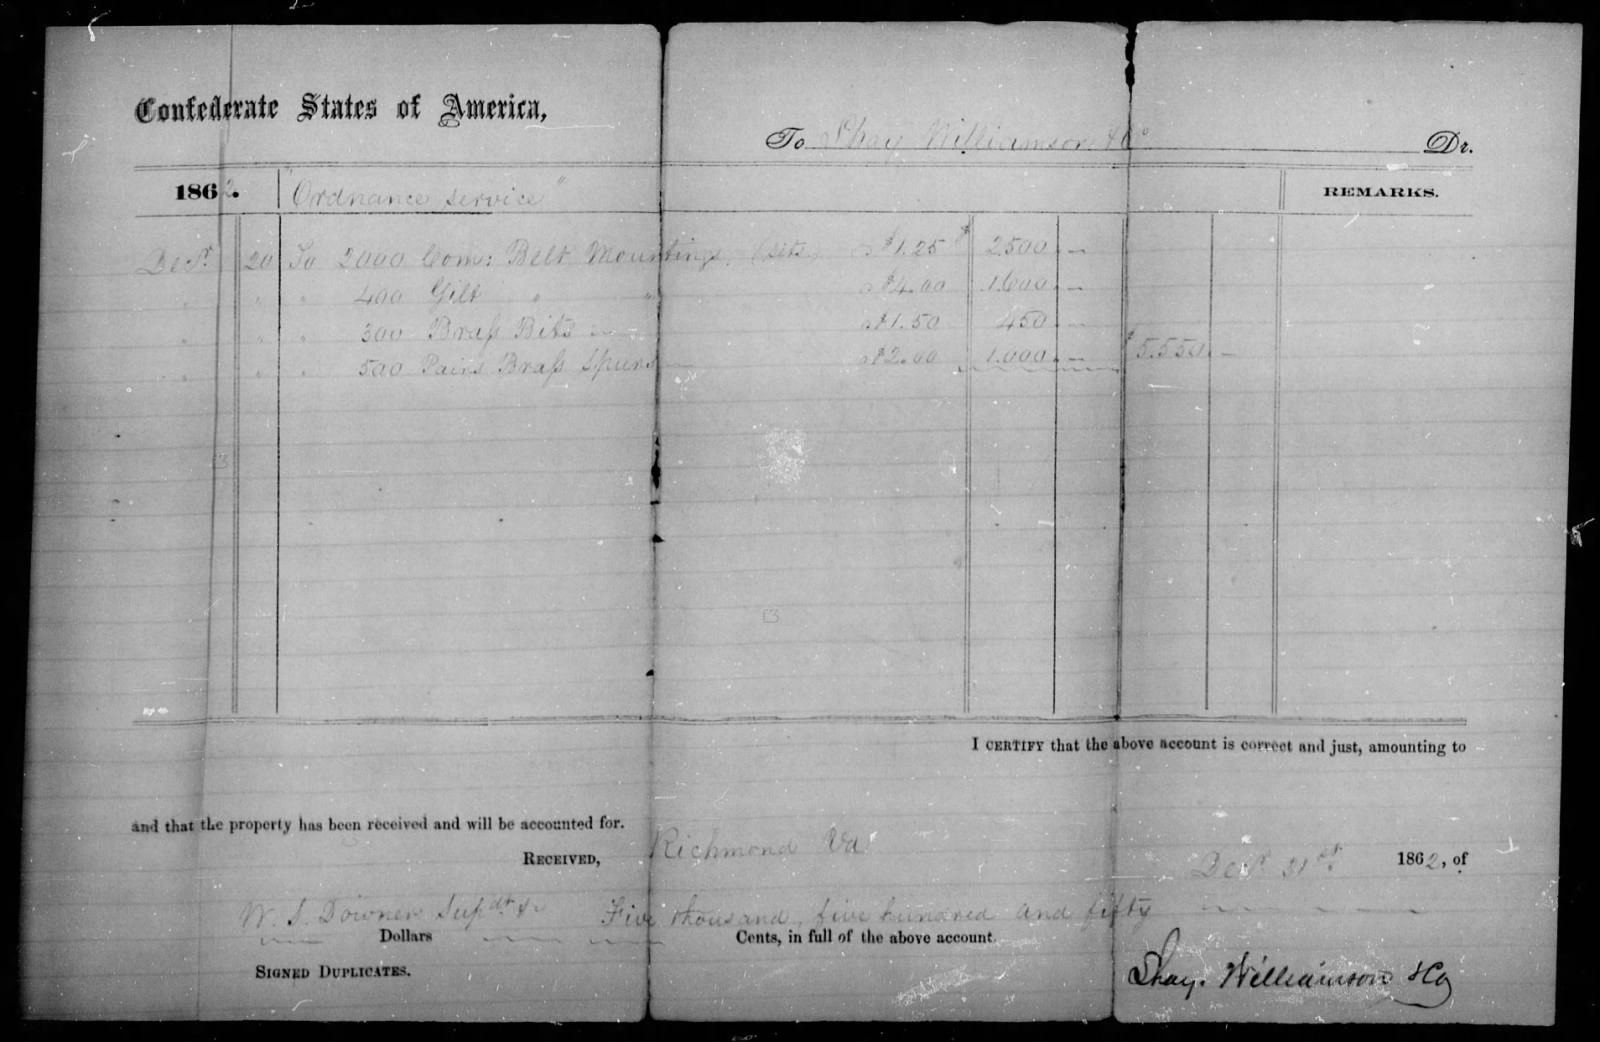 Confederate States of America,
To Shay Williamson & Co Dr.
1862. "Ordnance service" REMARKS.
Decr. 20 To 2000 Com: Belt Mountings, (sets) $1.25 $ 2500 —
" " " 400 Gilt " " $4.00 1.600 —
" " " 300 Brass Bits $1.50 450 —
" " " 500 Pairs Brass Spurs — $2.00 1.000 — $5.550 —
I CERTIFY that the above account is correct and just, amounting to
and that the property has been received and will be accounted for.
RECEIVED, Richmond Va Decr. 31st. 1862, of
W. S. Downer Supdt &c Five thousand, five hundred and fifty
Dollars Cents, in full of the above account.
SIGNED DUPLICATES.
Shay. Williamson & Co